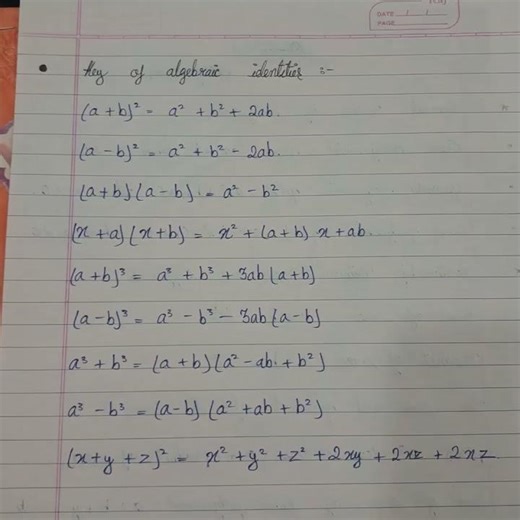 DATE / /
PAGE
Key of algebraic identities :-
(a + b)² = a² + b² + 2ab.
(a - b)² = a² + b² - 2ab.
(a+b) (a-b) = a² - b²
(x + a) (x + b) = x² + (a + b) x + ab.
(a + b)³ = a³ + b³ + 3ab (a + b)
(a - b)³ = a³ - b³ - 3ab (a - b)
a³ + b³ = (a + b) (a² - ab + b²)
a³ - b³ = (a - b) (a² + ab + b²)
(x + y + z)² = x² + y² + z² + 2xy + 2xz + 2xz